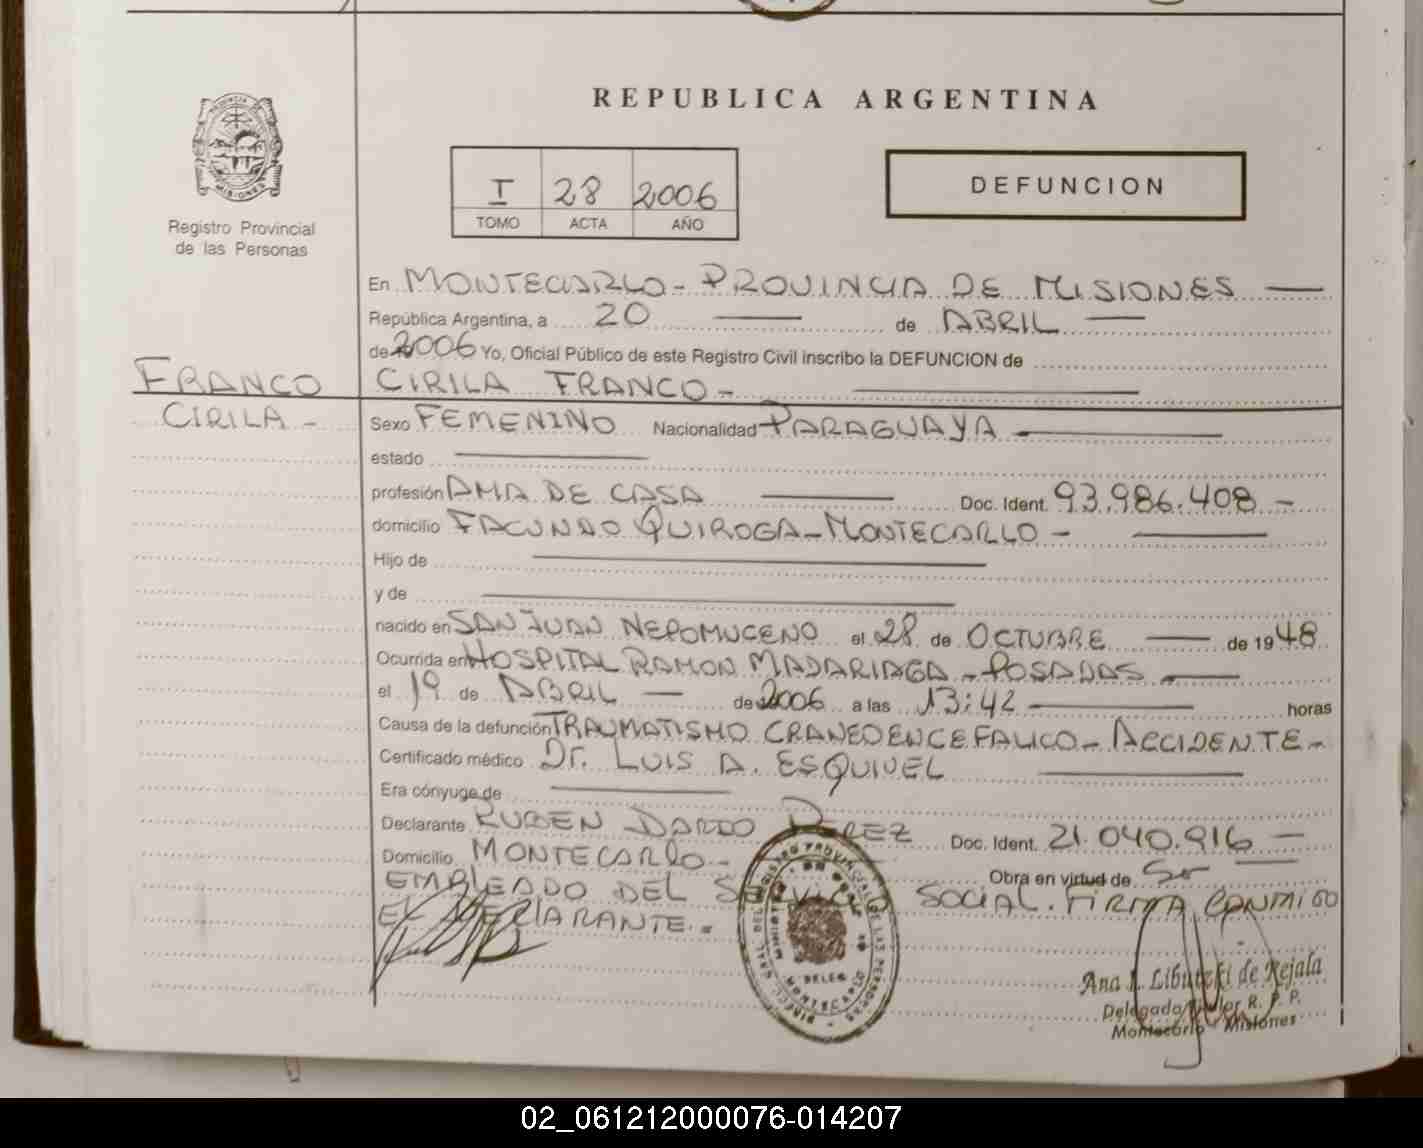 REPUBLICA ARGENTINA
PROVINCIA DE
MISIONES
Registro Provincial
de las Personas
I 28 2006
TOMO ACTA AÑO
DEFUNCION
En MONTECARLO - PROVINCIA DE MISIONES
República Argentina, a 20 de ABRIL
de 2006 Yo, Oficial Público de este Registro Civil inscribo la DEFUNCION de
FRANCO CIRILA FRANCO -
CIRILA - Sexo FEMENINO Nacionalidad PARAGUAYA
estado
profesión AMA DE CASA Doc. Ident. 93.986.408 -
domicilio FACUNDO QUIROGA - MONTECARLO -
Hijo de
y de
nacido en SAN JUAN NEPOMUCENO el 28 de OCTUBRE de 1948
Ocurrida en HOSPITAL RAMON MADARIAGA - POSADAS
el 19 de ABRIL de 2006 a las 13:42 horas
Causa de la defunción TRAUMATISMO CRANEOENCEFALICO - ACCIDENTE -
Certificado médico Dr. LUIS A. ESQUIVEL
Era cónyuge de
Declarante RUBEN DARIO PEREZ Doc. Ident. 21.040.916 -
Domicilio MONTECARLO -
Obra en virtud de Ser
EMPLEADO DEL SERVICIO SOCIAL. FIRMA CONMIGO
EL DECLARANTE. =
Ana Libutzki de Rejala
Delegada Titular R. P. P.
Montecarlo Misiones
02_061212000076-014207